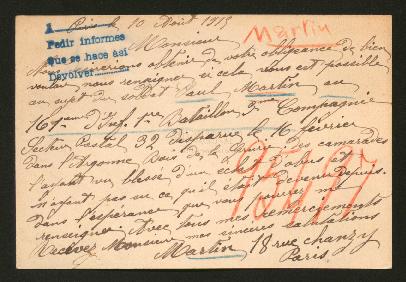 A
Pedir informes
que se hace asi
Devolver
Paris le 10 Août 1915
Martin
Monsieur
Nous aimerions obtenir de votre obligeance de bien
vouloir nous renseigner si cela vous est possible
au sujet du soldat Paul Martin au
169eme d'Inf. 1re Bataillon 3me Compagnie
Secteur Postal 32 disparu le 16 février
dans l'Argonne Bois de la des camarades
l'ayant vu blessé d'un éclat d'obus et
n'ayant pas su ce qu'il était devenu depuis.
dans l'espérance que vous pourrez me
renseigner. Avec tous mes remerciements
Recevez Monsieur mes sincères salutations
Martin 18 rue Chanzy
Paris